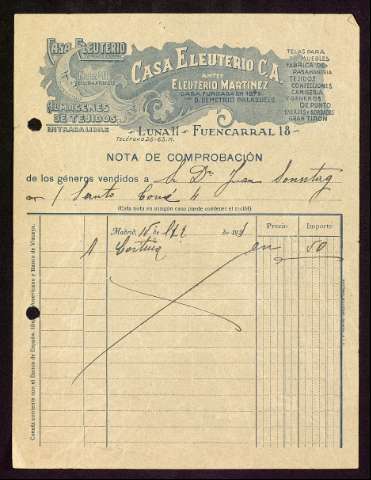 CASA ELEUTERIO
ALMACENES
DE TEJIDOS
ENTRADA LIBRE
CASA ELEUTERIO C.A.
ANTES
ELEUTERIO MARTINEZ
CASA FUNDADA EN 1879
D. DEMETRIO PALAZUELO
TELAS PARA
MUEBLES
FABRICA DE
PASAMANERIA
TEJIDOS
CONFECCIONES
CAMISERIA
GENEROS
DE PUNTO
ENCAJES Y BORDADOS
GRAN TINON
LUNA 11 - FUENCARRAL 18
TELÉFONO 25-63.M.
NOTA DE COMPROBACIÓN
de los géneros vendidos a Dn Juan
1 Santo Tomé 4
(Esta nota en ningún caso puede contener el recibí)
Madrid, 15 de de 193
Precio
Importe
1 Cortina en 50
Cuenta corriente con el Banco de España, Americano y Banco de Vizcaya.